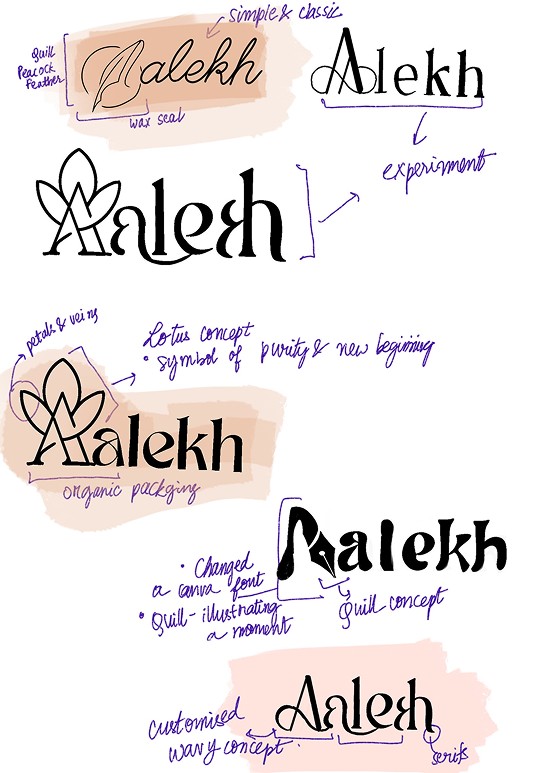 simple & classic
Quill
Peacock
Feather
Aalekh
wax seal
Alekh
experiment
Aalekh
petals & veins
Lotus concept
• symbol of purity & new beginning
Aalekh
organic packging
Aalekh
• Changed
a canva font
• Quill-illustrating
a moment
Quill concept
Aalekh
customised
wavy concept.
serifs